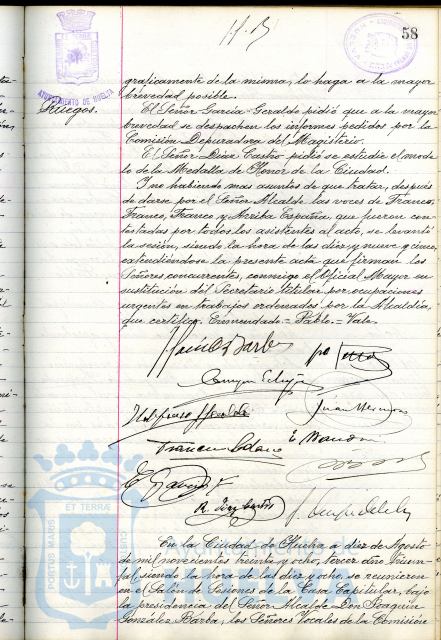 58
AYUNTAMIENTO DE HUELVA
Ruegos.
graficamente de la misma, lo haga a la mayor
brevedad posible.
El Señor Garcia-Geraldo pidió que a la mayor
brevedad se despachen los informes pedidos por la
Comisión Depuradora del Magisterio.
El Señor Diaz Castro pidió se estudie el mode-
lo de la Medalla de Honor de la Ciudad.
Y no habiendo mas asuntos de que tratar, después
de darse por el Señor Alcalde las voces de Franco,
Franco, Franco y Arriba España, que fueron con-
testadas por todos los asistentes al acto, se levantó
la sesión, siendo la hora de las diez y nueve y cinco,
extendiéndose la presente acta que firman los
Señores concurrentes, conmigo el Oficial Mayor en
sustitución del Secretario titular por ocupaciones
urgentes en trabajos ordenados por la Alcaldía,
que certifico. Enmendado = Pablo = Vale.
PORTUS MARIS
ET TERRÆ
En la Ciudad de Huelva a diez de Agosto
de mil novecientos treinta y ocho, tercer año Triun-
fal, siendo la hora de las diez y ocho, se reunieron
en el Salón de Sesiones de la Casa Capitular, bajo
la presidencia del Señor Alcalde Don Joaquin
González Barba, los Señores Vocales de la Comisión